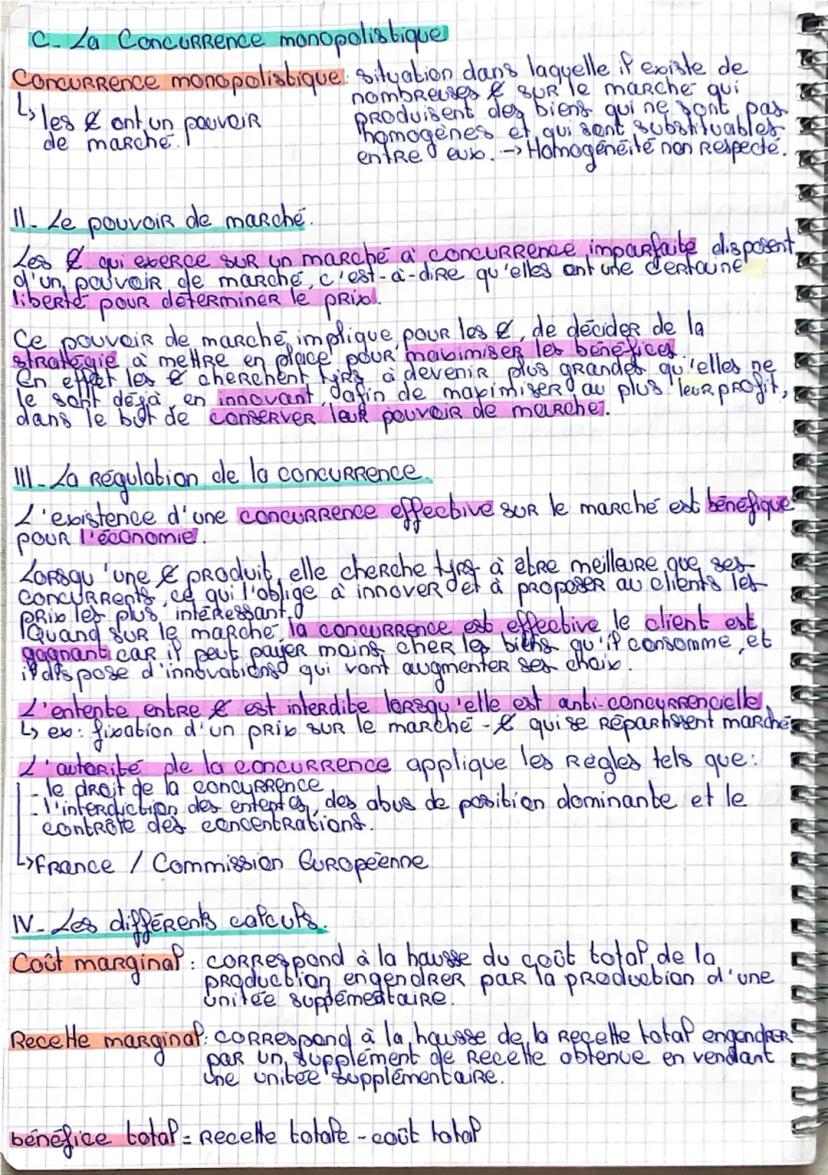 C- La Concurrence monopolistique
Concurrence monopolistique: situation dans laquelle il existe de
nombreuses € sur le marché qui
produisent des biens qui ne sont pas
homogènes et qui sont substituables
entre eux. → Homogénéité non respecté.
↳ les € ont un pouvoir
de marché.
II- Le pouvoir de marché.
Les € qui exerce sur un marché à concurrence imparfaite disposent
d'un pouvoir de marché, c'est-à-dire qu'elles ont une certaine
liberté pour déterminer le prix.
Ce pouvoir de marché implique, pour les €, de décider de la
stratégie à mettre en place pour maximiser les bénéfices.
En effet les € cherchent tjrs à devenir plus grandes qu'elles ne
le sont déjà en innovant, afin de maximiser au plus leur profit,
dans le but de conserver leur pouvoir de marché.
III- La régulation de la concurrence.
L'existence d'une concurrence effective sur le marché est bénéfique
pour l'économie.
Lorsqu'une € produit, elle cherche tjrs à être meilleure que ses
concurrents, ce qui l'oblige à innover et à proposer au clients les
prix les plus intéressant.
Quand sur le marché, la concurrence est effective, le client est
gagnant car il peut payer moins cher les biens qu'il consomme, et
il dispose d'innovations qui vont augmenter ses choix.
L'entente entre € est interdite lorsqu'elle est anti-concurrencielle,
↳ ex: fixation d'un prix sur le marché - € qui se répartissent marché
L'autorité de la concurrence applique les règles tels que:
- le droit de la concurrence
- l'interdiction des ententes, des abus de position dominante et le
contrôte des concentrations.
↳ France / Commission Européenne
IV- Les différents calculs.
Coût marginal: correspond à la hausse du coût total de la
production engendrer par la production d'une
unitée supplémentaire.
Recette marginal: correspond à la hausse de la recette total engendrer
par un supplément de recette obtenue en vendant
une unitée supplémentaire.
bénéfice total = Recette totale - coût total